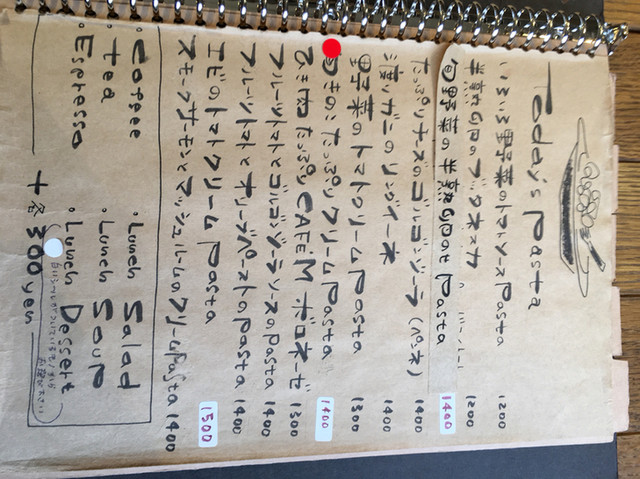 Today's Pasta
いろいろ野菜のトマトソースPasta 1200
半熟卵のプッタネスカ 1200
旬野菜の半熟卵のせPasta 1400
たっぷりチーズのゴルゴンゾーラ(ペンネ) 1400
渡りガニのリングイーネ 1400
野菜のトマトクリームPasta 1300
きのこたっぷりクリームPasta 1400
ひき肉たっぷりCAFE M ボロネーゼ 1300
フルーツトマトとゴルゴンゾーラソースのPasta 1400
フルーツトマトとオリーブペーストのPasta 1400
エビのトマトクリームPasta 1500
スモークサーモンとマッシュルームのクリームPasta 1400
・Coffee ・Lunch Salad
・tea ・Lunch Soup
・Espresso ・Lunch Dessert
+各300yen